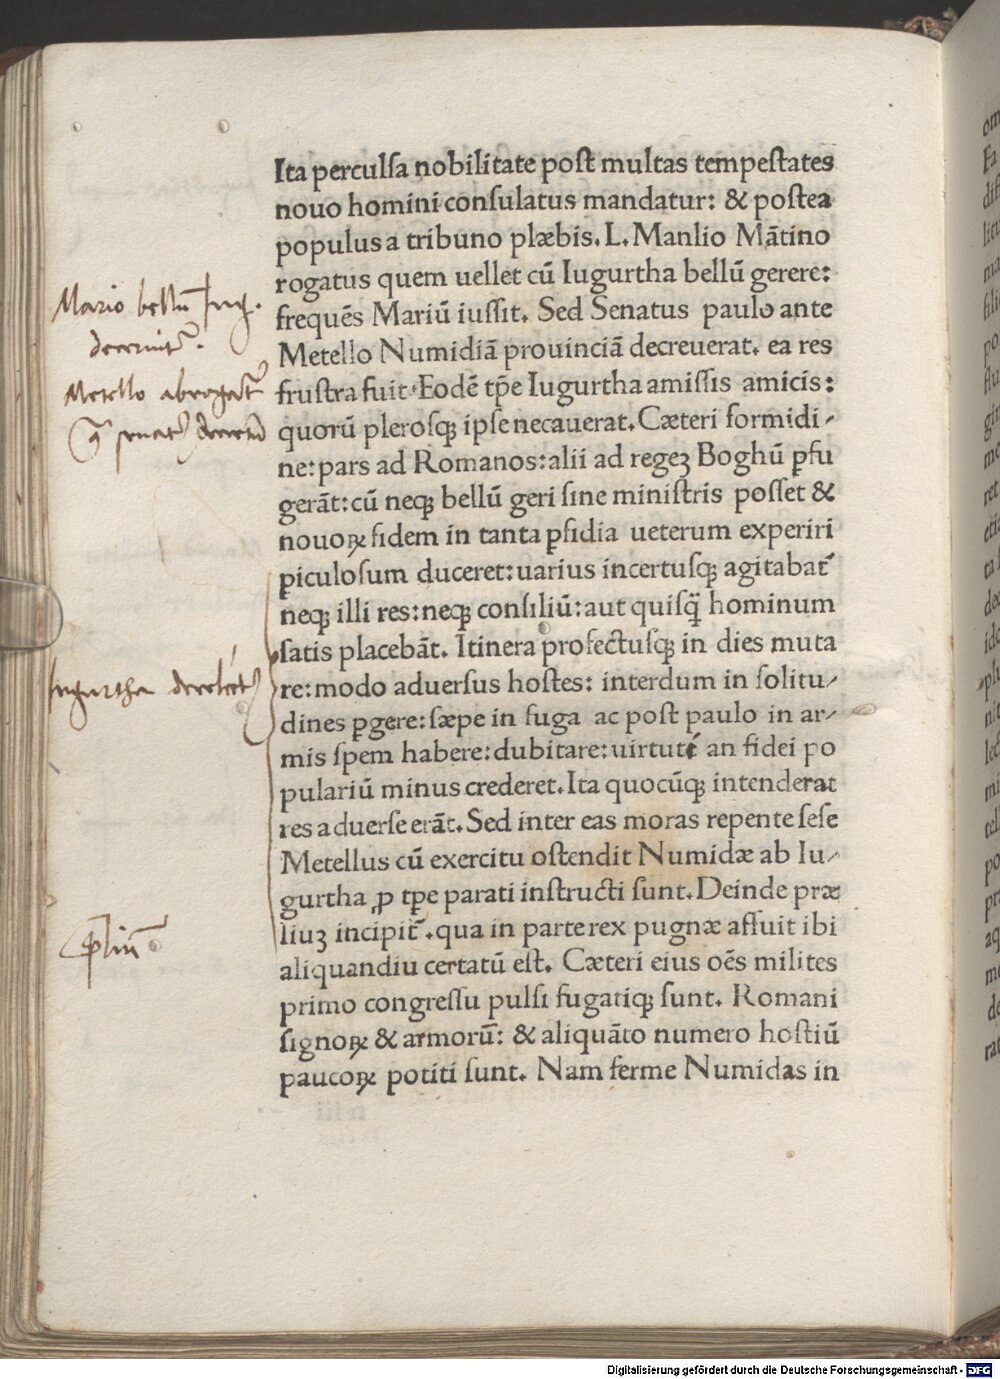 Ita perculſa nobilitate poſt multas tempeſtates
nouo homini conſulatus mandatur: & poſtea
populus a tribuno plæbis. L. Manlio Mātino
rogatus quem uellet cū Iugurtha bellū gerere:
frequēs Mariū iuſſit. Sed Senatus paulo ante
Metello Numidiā prouinciā decreuerat. ea res
fruſtra fuit. Eodē tp̄e Iugurtha amiſſis amicis:
quorū pleroſqꝫ ipſe necauerat. Cæteri formidi⸗
ne: pars ad Romanos: alii ad regeꝫ Boghū ꝑfu
gerāt: cū neqꝫ bellū geri ſine miniſtris poſſet &
nouoꝝ fidem in tanta ꝑfidia ueterum experiri
ꝑiculoſum duceret: uarius incertuſqꝫ agitabat̄
neqꝫ illi res: neqꝫ conſiliū: aut quiſq̄ hominum
ſatis placebāt. Itinera profectuſqꝫ in dies muta
re: modo aduerſus hoſtes: interdum in ſolitu⸗
dines ꝑgere: ſæpe in fuga ac poſt paulo in ar⸗
mis ſpem habere: dubitare: uirtuti an fidei po
pulariū minus crederet. Ita quocūqꝫ intenderat
res aduerſe erāt. Sed inter eas moras repente ſeſe
Metellus cū exercitu oſtendit Numidæ ab Iu⸗
gurtha ꝓ tp̄e parati inſtructi ſunt. Deinde præ
liuꝫ incipit̄. qua in parte rex pugnæ affuit ibi
aliquandiu certatū eſt. Cæteri eius oēs milites
primo congreſſu pulſi fugatiqꝫ ſunt. Romani
ſignoꝝ & armorū: & aliquāto numero hoſtiū
paucoꝝ potiti ſunt. Nam ferme Numidas in
Mario bellū Iug.
decernit̄.
Metello abrogat̄
Iugurtha
p̄liū
Digitalisierung gefördert durch die Deutsche Forschungsgemeinschaft - DFG